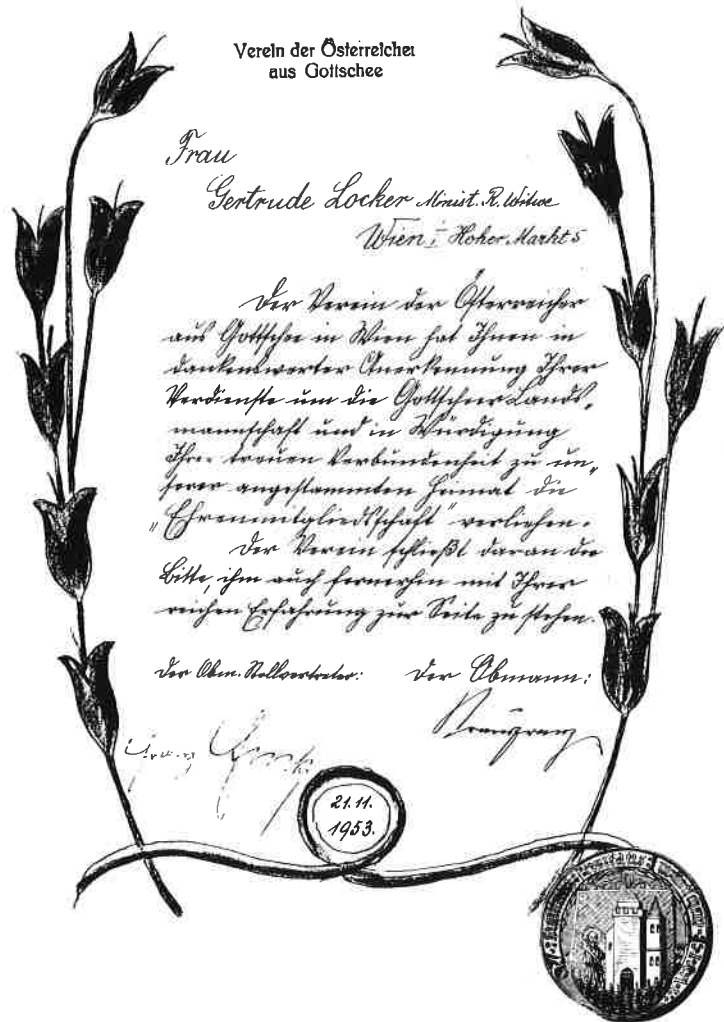 Verein der Österreicher
aus Gottschee
Frau
Gertrude Locker Minist. R. Witwe
Wien I Hoher Markt 5
Der Verein der Österreicher
aus Gottschee in Wien hat Ihnen in
dankenswerter Anerkennung Ihrer
Verdienste um die Gottscheer Lands-
mannschaft und in Würdigung
Ihrer treuen Verbundenheit zu un-
serer angestammten Heimat die
"Ehrenmitgliedschaft" verliehen.
Der Verein schließt daran die
Bitte, ihm auch fernerhin mit Ihrer
reichen Erfahrung zur Seite zu stehen.
Der Obm. Stellvertreter: Der Obmann:
21.11.
1953.